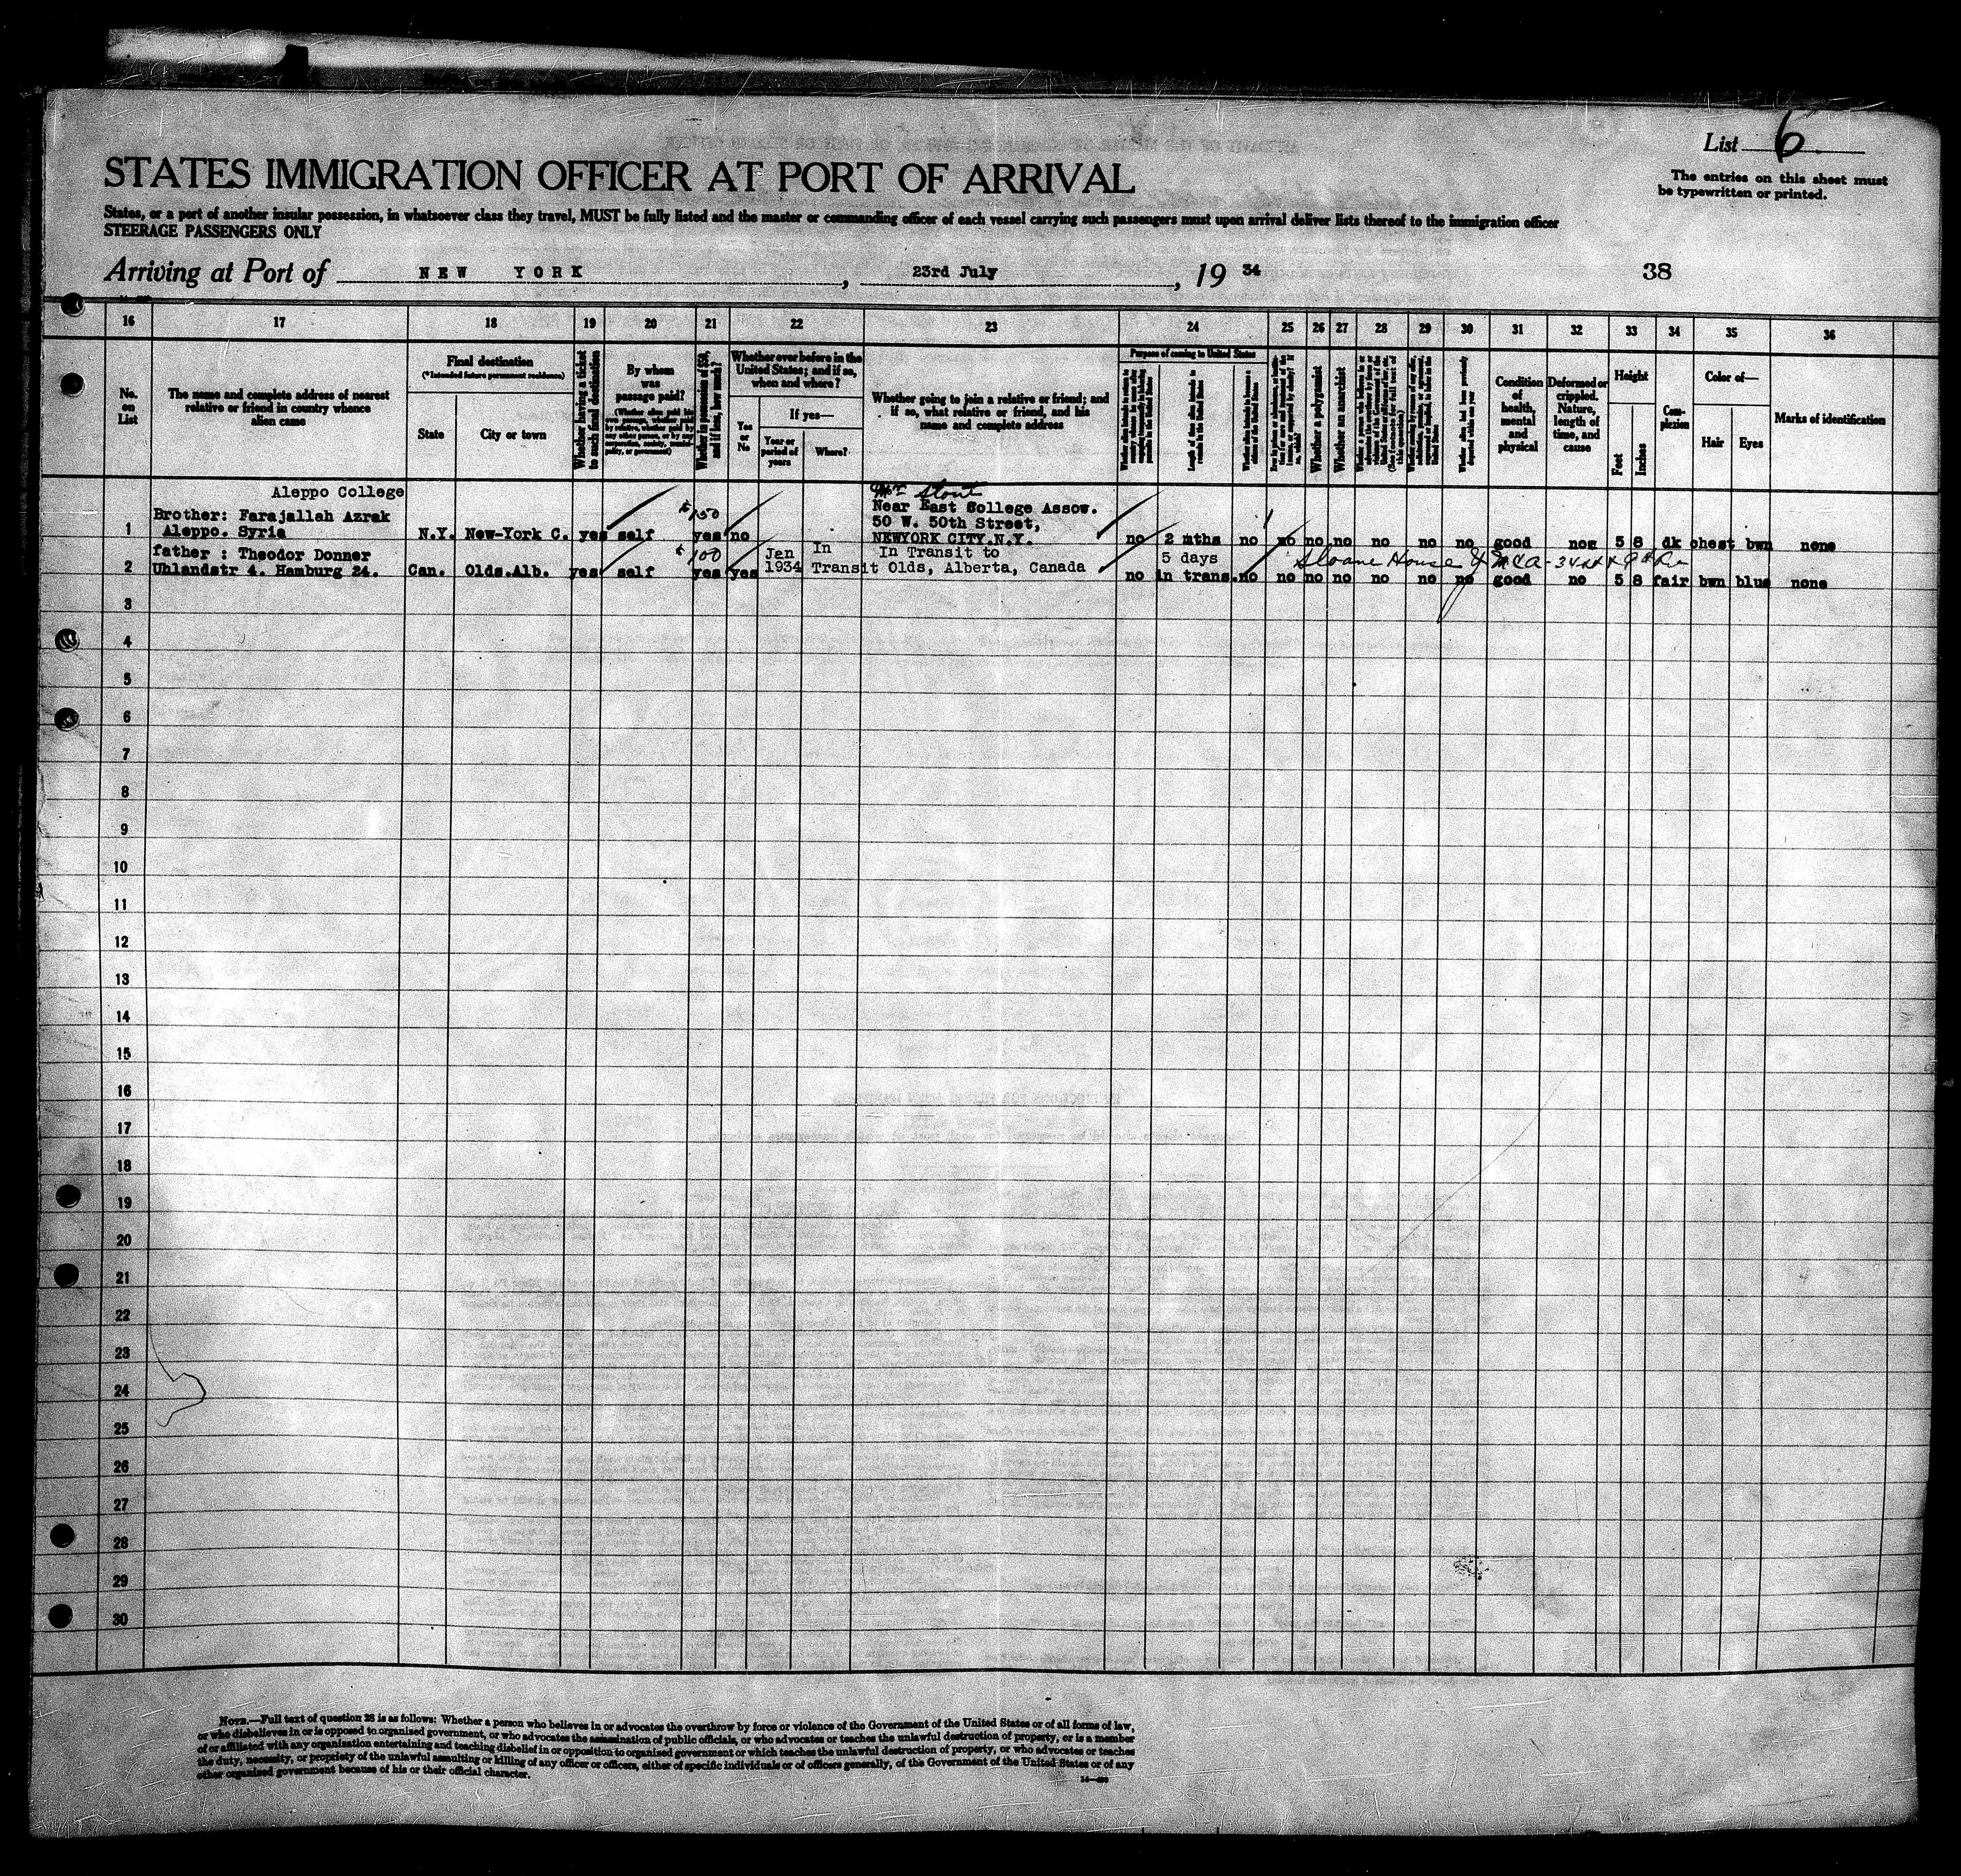 List 6.
The entries on this sheet must
be typewritten or printed.
STATES IMMIGRATION OFFICER AT PORT OF ARRIVAL
States, or a port of another insular possession, in whatsoever class they travel, MUST be fully listed and the master or commanding officer of each vessel carrying such passengers must upon arrival deliver lists thereof to the immigration officer
STEERAGE PASSENGERS ONLY
Arriving at Port of NEW YORK, 23rd July, 19 34
38
16 17 18 19 20 21 22 23 24 25 26 27 28 29 30 31 32 33 34 35 36
No. on List
The name and complete address of nearest relative or friend in country whence alien came
Final destination
(*Intended future permanent residence)
State
City or town
Whether having a ticket to such final destination
By whom was passage paid?
Whether in possession of $50, and if less, how much?
Whether ever before in the United States; and if so, when and where?
Yes or No
If yes—
Year or period of years
Where?
Whether going to join a relative or friend; and if so, what relative or friend, and his name and complete address
Purpose of coming to United States
Length of time alien intends to remain in the United States
Whether a polygamist
Whether an anarchist
Condition of health, mental and physical
Deformed or crippled. Nature, length of time, and cause
Height
Feet
Inches
Complexion
Color of—
Hair
Eyes
Marks of identification
Aleppo College
1 Brother: Farajallah Azrak
Aleppo. Syria
N.Y. New-York C. yes self $150 yes no
Mr Stout
Near East College Assow.
50 W. 50th Street,
NEWYORK CITY.N.Y.
no 2 mths no no no no no no no good non 5 8 dk chest bwn none
2 father : Theodor Donner
Uhlandstr 4. Hamburg 24.
Can. Olds.Alb. yes self $100 yes yes Jen 1934 In Transit
In Transit to
Olds, Alberta, Canada
5 days
no in trans. no no no no no no no good no 5 8 fair bwn blue none
Sloane House
3
4
5
6
7
8
9
10
11
12
13
14
15
16
17
18
19
20
21
22
23
24
25
26
27
28
29
30
NOTE.—Full text of question 28 is as follows: Whether a person who believes in or advocates the overthrow by force or violence of the Government of the United States or of all forms of law,
or who disbelieves in or is opposed to organised government, or who advocates the assassination of public officials, or who advocates or teaches the unlawful destruction of property, or is a member
of or affiliated with any organisation entertaining and teaching disbelief in or opposition to organised government or which teaches the unlawful destruction of property, or who advocates or teaches
the duty, necessity, or propriety of the unlawful assaulting or killing of any officer or officers, either of specific individuals or of officers generally, of the Government of the United States or of any
other organised government because of his or their official character.